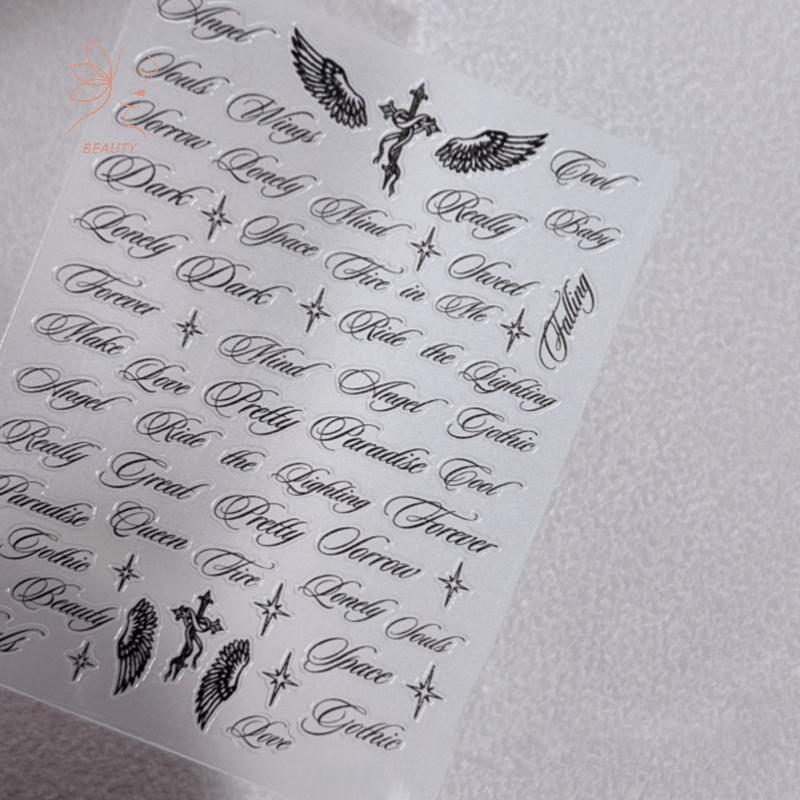 Angel
Souls Wings
Sorrow Lonely Mind Really Cool
Dark Space Sweet Baby
Lonely Dark Fire in Me Falling
Forever Ride the Lighting
Make Love Mind Angel Gothic
Angel Pretty Paradise Cool
Really Ride the Lighting Forever
Great Pretty Sorrow
Paradise Queen Fire Lonely Souls
Gothic Space
Beauty Gothic
Love
BEAUTY